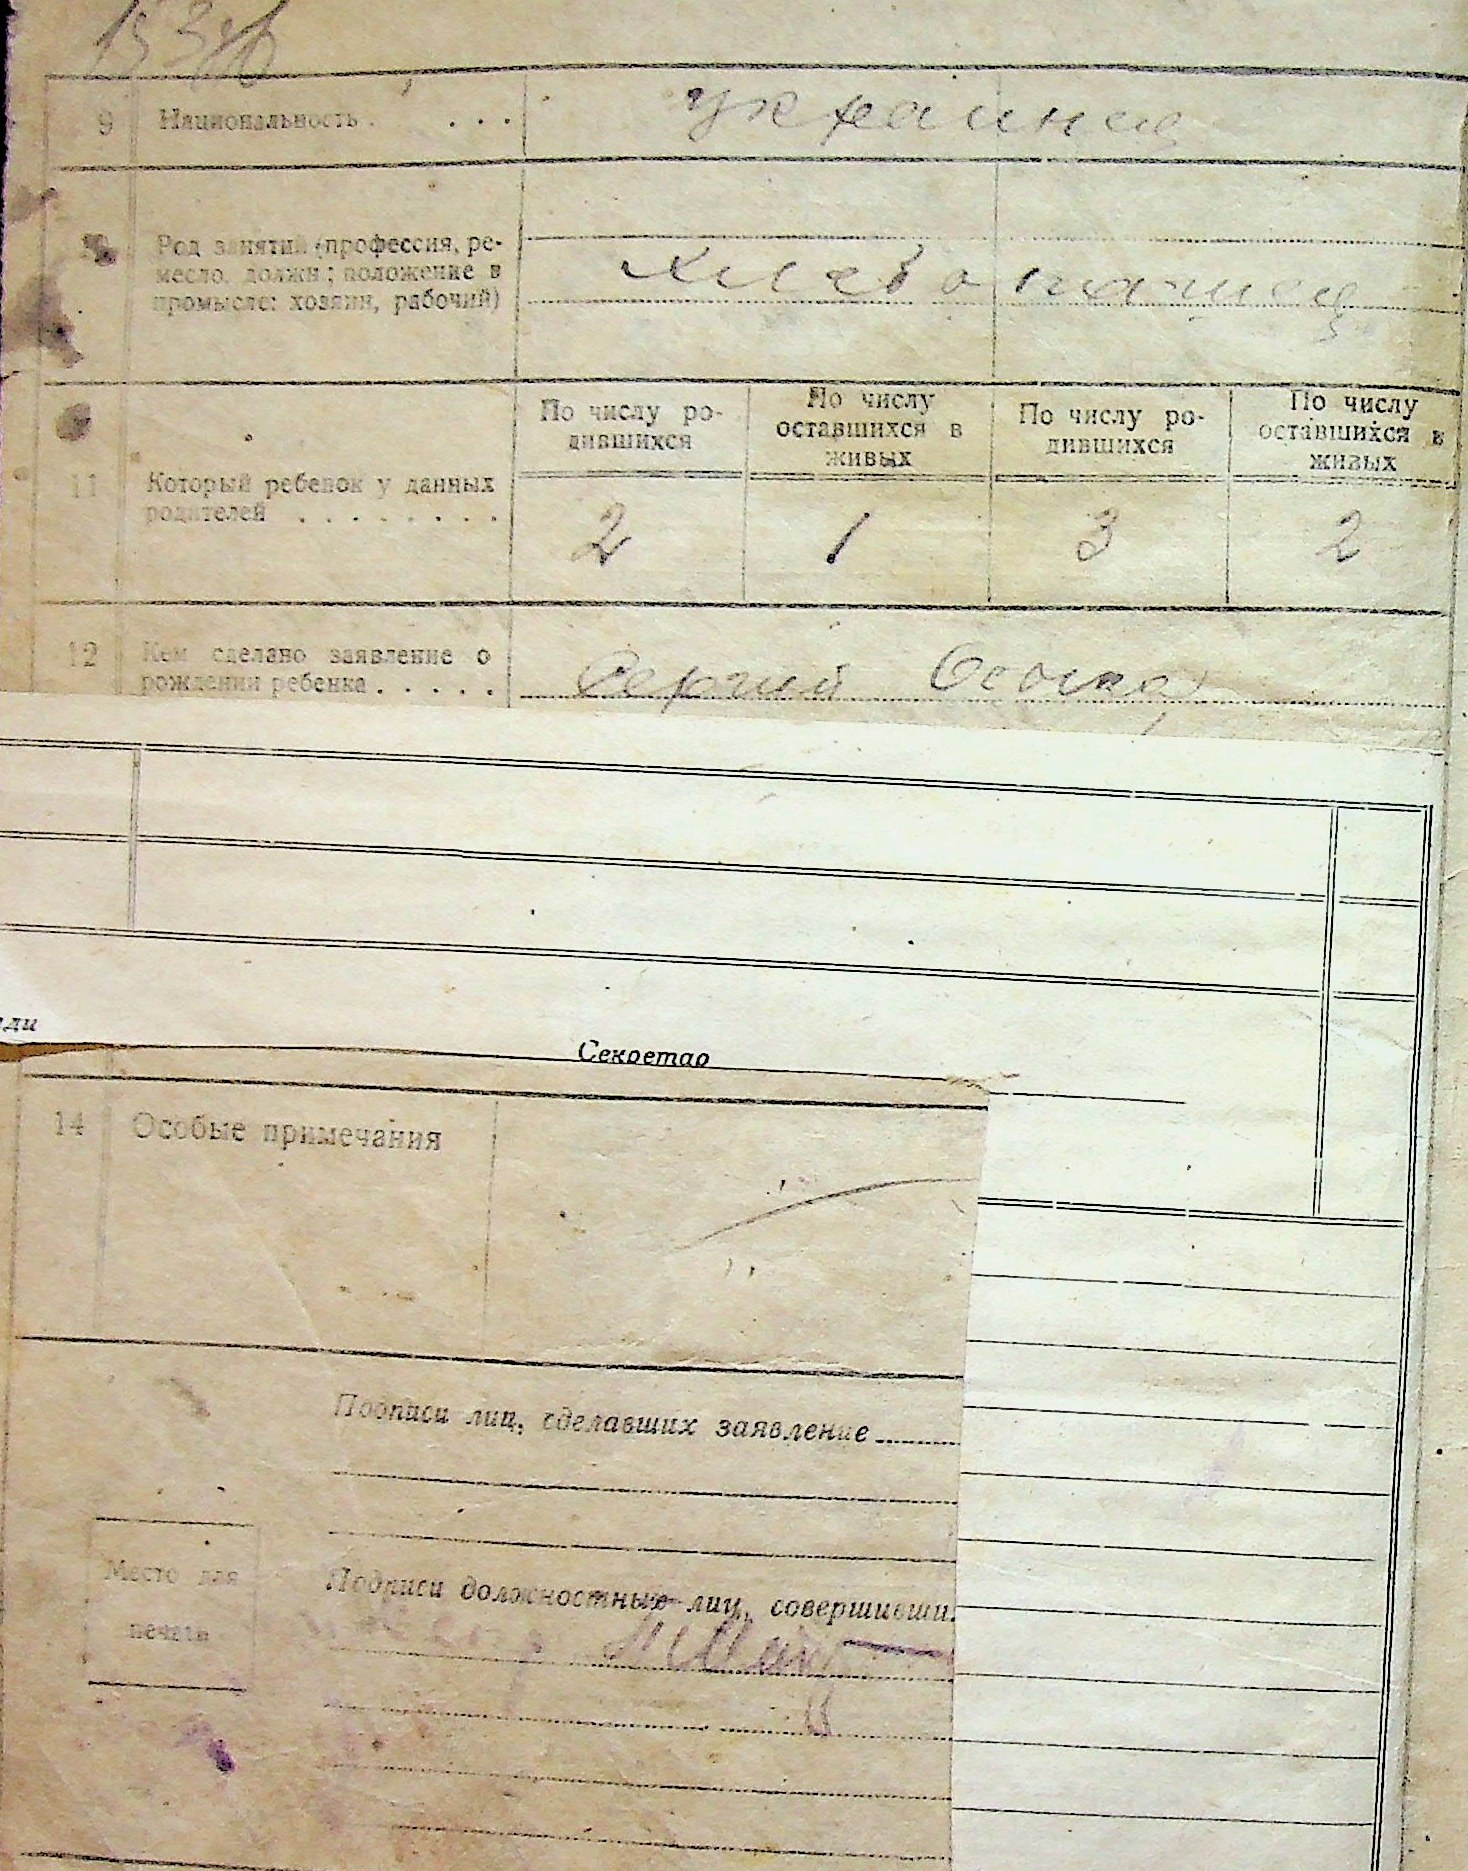 9 Национальность . . . . украинец
10 Род занятий (профессия, ре-
месло, должн; положение в
промысле: хозяин, рабочий)
хлебопашец
По числу ро-
дившихся
По числу
оставшихся в
живых
По числу ро-
дившихся
По числу
оставшихся в
живых
11 Который ребенок у данных
родителей . . . . . . . .
2 1 3 2
12 Кем сделано заявление о
рождении ребенка . . . . .
Сергий
ди
Секретар
14 Особые примечания
Подписи лиц, сделавших заявление
Место для
печати
Подписи должностных лиц, совершивши